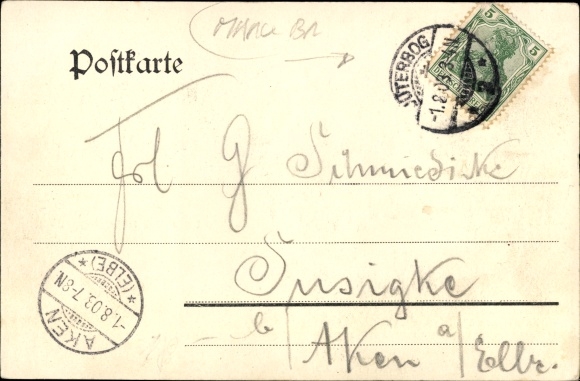 Postkarte
JÜTERBOG
-1.8.03
* 2 *
5
5
Frl. G. Schmiedicke
Susigke
b/ Aken a/Elbe.
AKEN
-1.8.03.7-8N.
* (ELBE) *